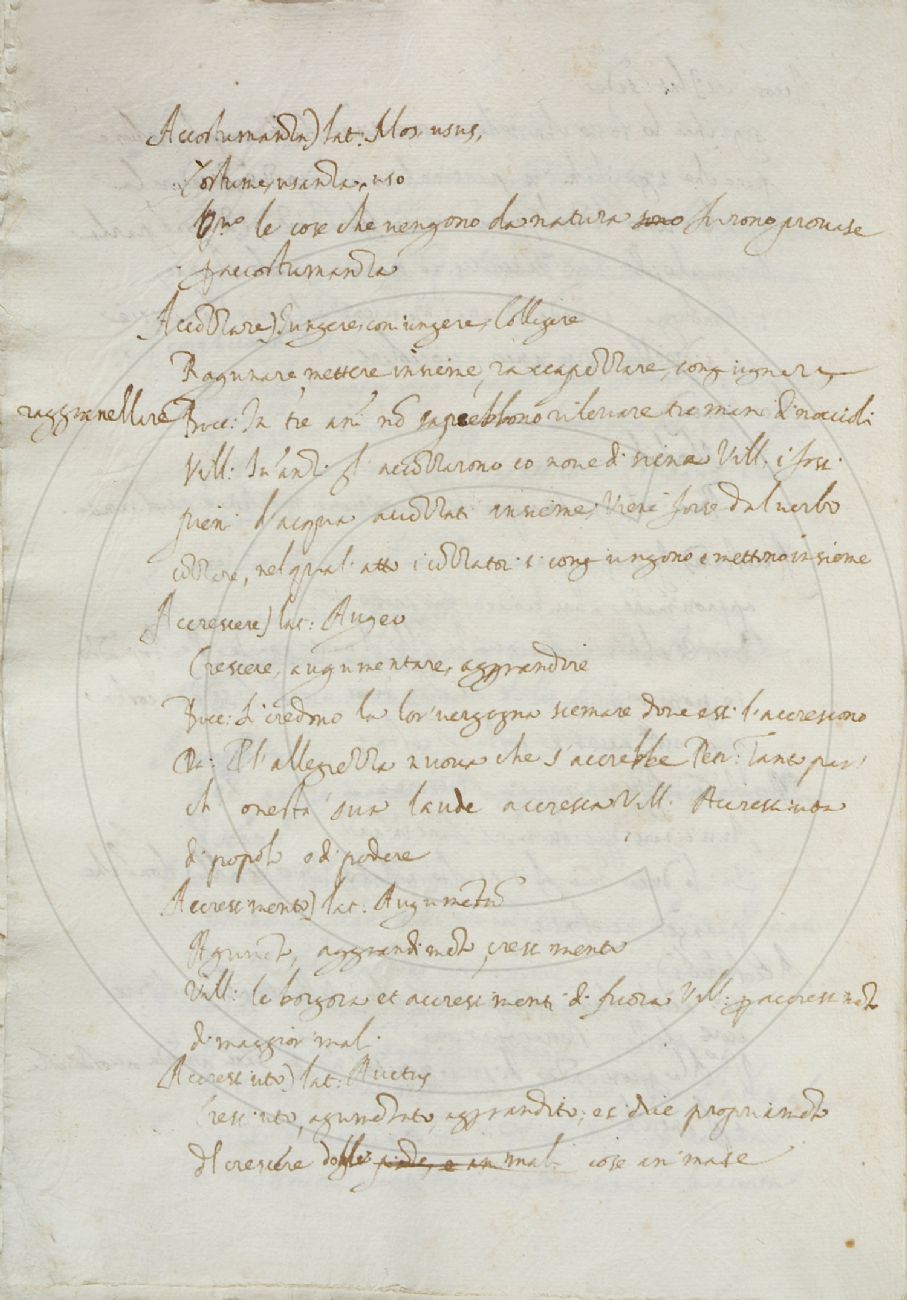 Accostumanza) lat: Mos usus,
Costume, usanza, uso
le cose che vengono da natura sono furono provase
p accostumanza
Accozzare) Iungere, coniungere, Colligere
Ragunare, mettere insieme, raccapezzare, congiugnere
raggranellare
Bocc: In tre an̄i nō saprebbono rilevare tre mani di noccioli
Vill: accozzarono co none di siena Vill.
pieni d'acqua accozzati insieme, Viene forse dal verbo
cozzare, nel qual' atto i cozzatori si congiungono e mettono insieme
Accrescere) lat: Augeo
Crescere, augumentare, aggrandire
Bocc: Si credono la lor' vergogna scemare dove essi l'accrescono
Da: P l'allegrezza nuova che s'accrebbe Petr: Tanto par'
ch' onestà sua laude accresca Vill. Accresciuta
di popolo e di podere
Accrescimento) lat: Augumētū
Agiunta, aggrandimēto, crescimento
Vill: le borgora et accrescimenti di fuora Vill: p accrescimēto
di maggior mali.
Accresciuto) lat: Auctus
Cresciuto, agumētato, aggrandito, e si dice propriamēte
del crescere delle piāte, e animali cose animate